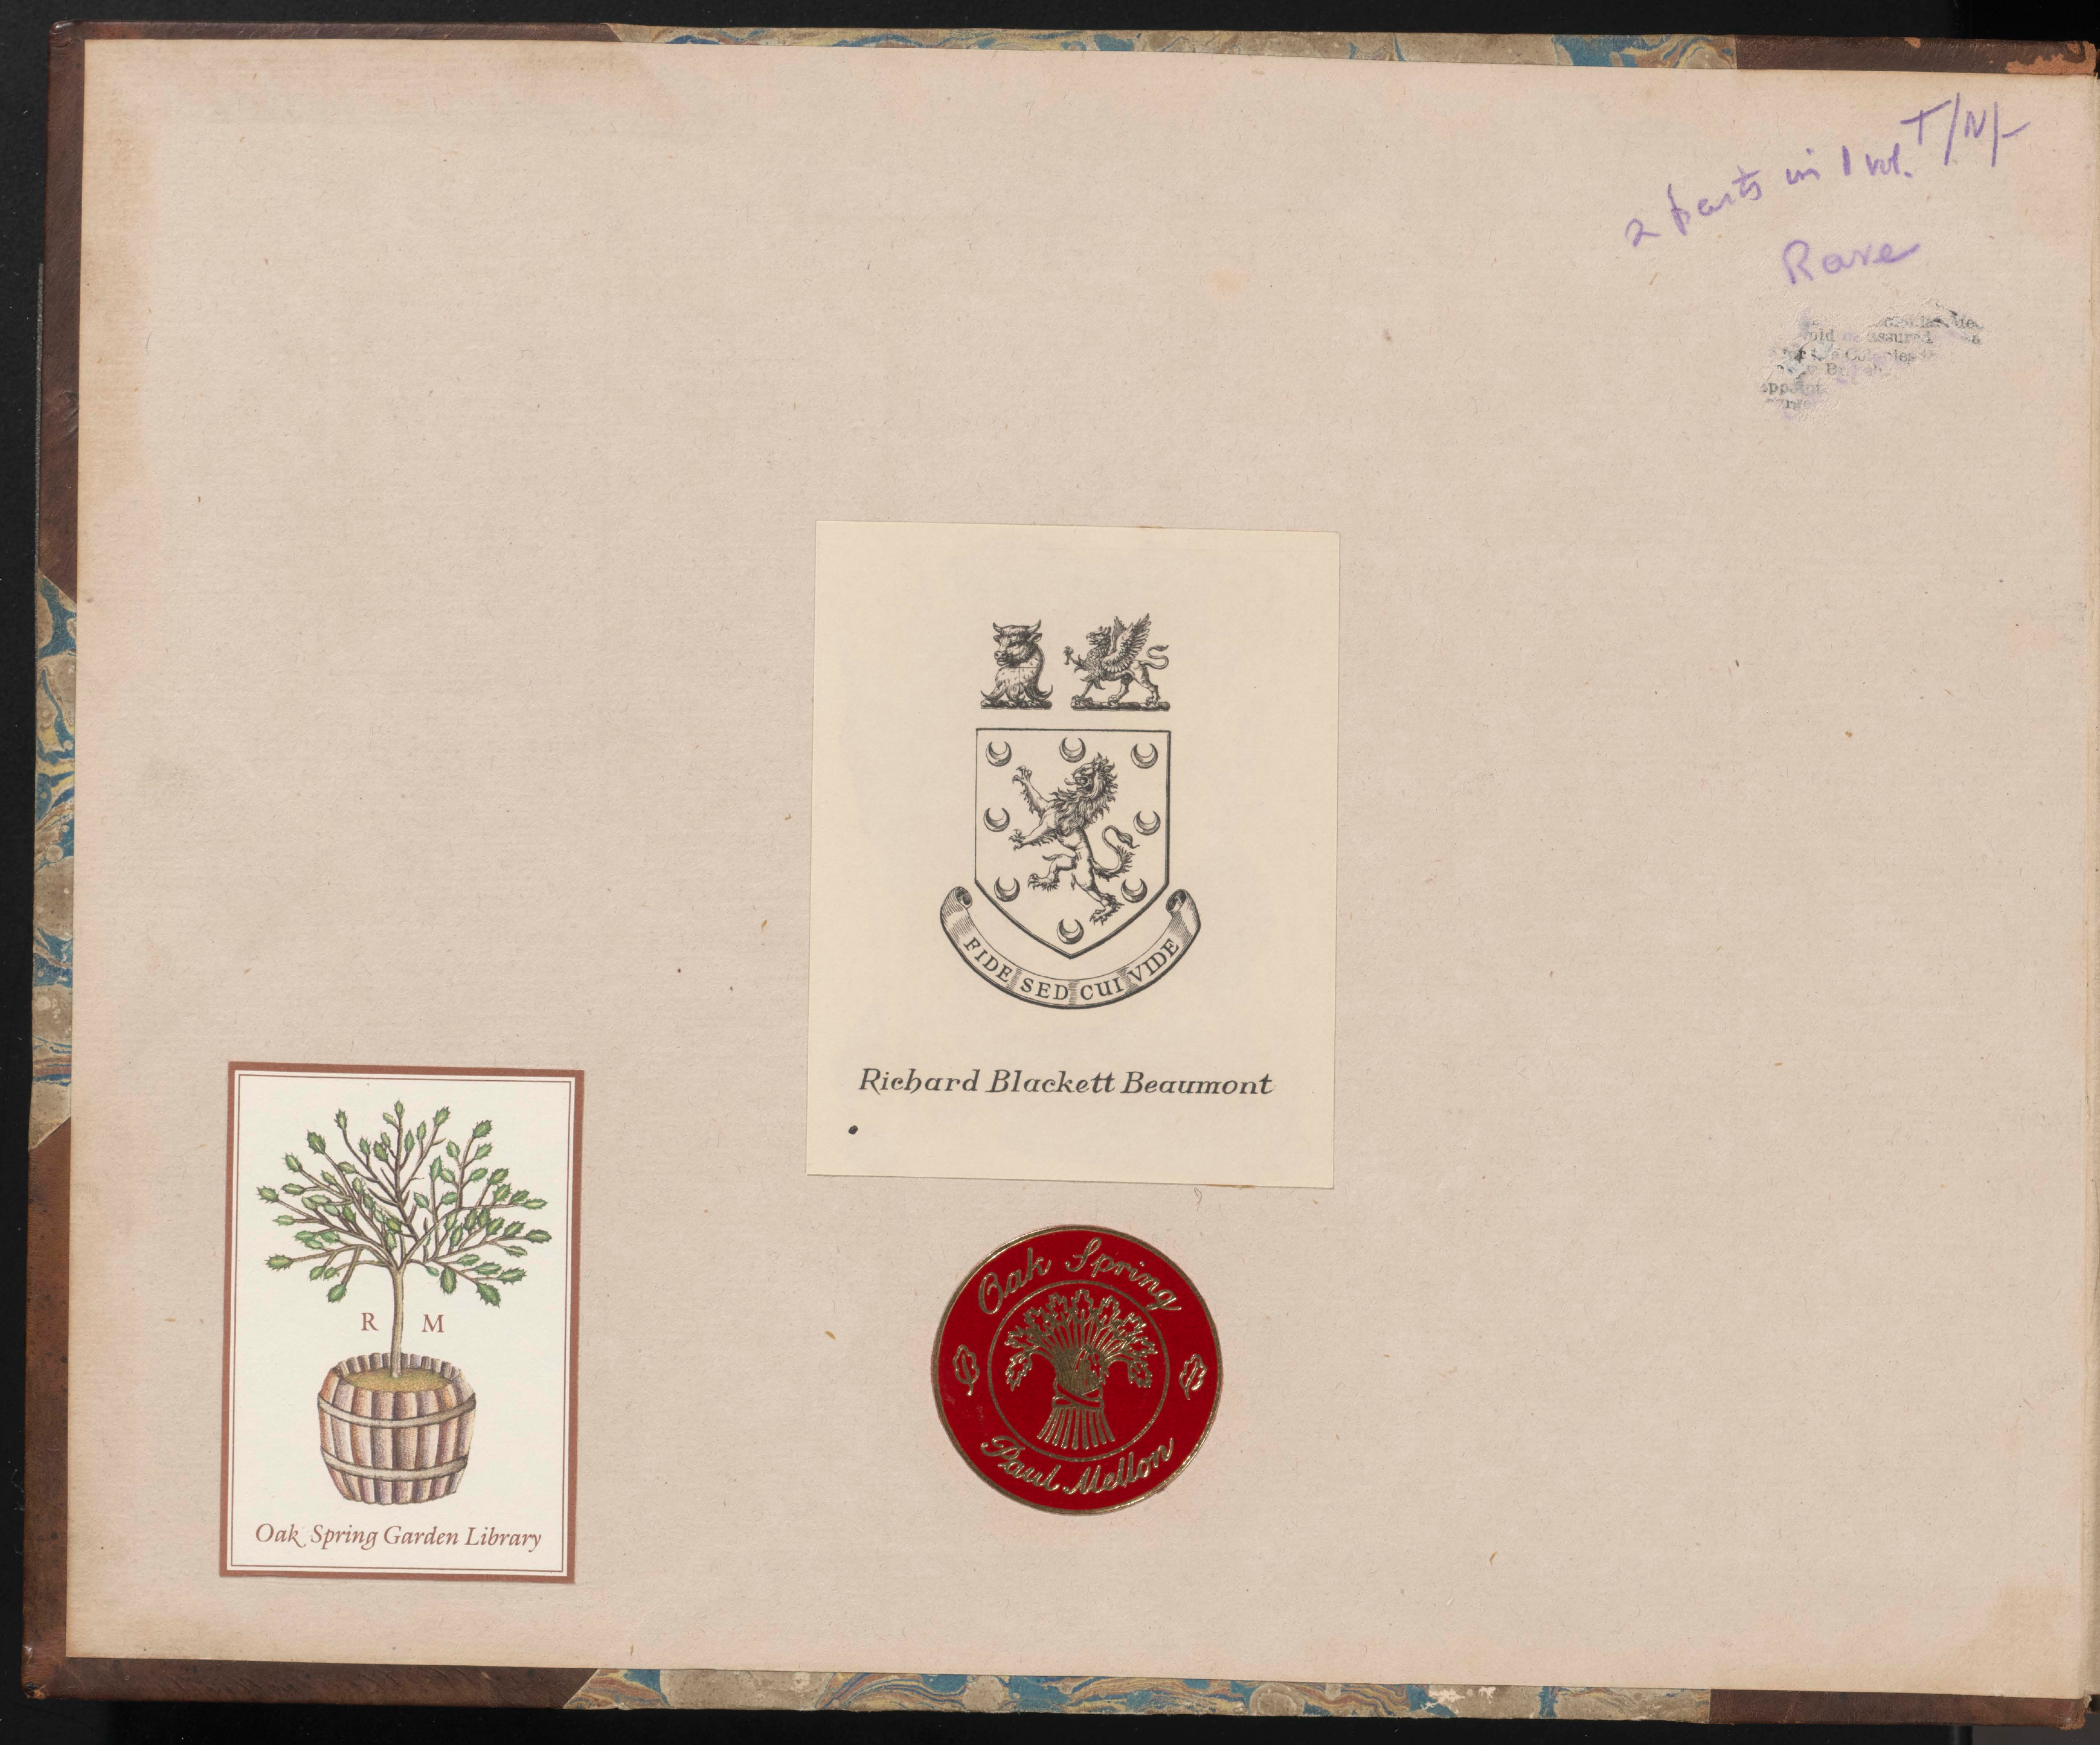 T/N/-
2 parts in 1 vol.
Rare
assured
FIDE SED CUI VIDE
Richard Blackett Beaumont
R M
Oak Spring Garden Library
Oak Spring
Paul Mellon